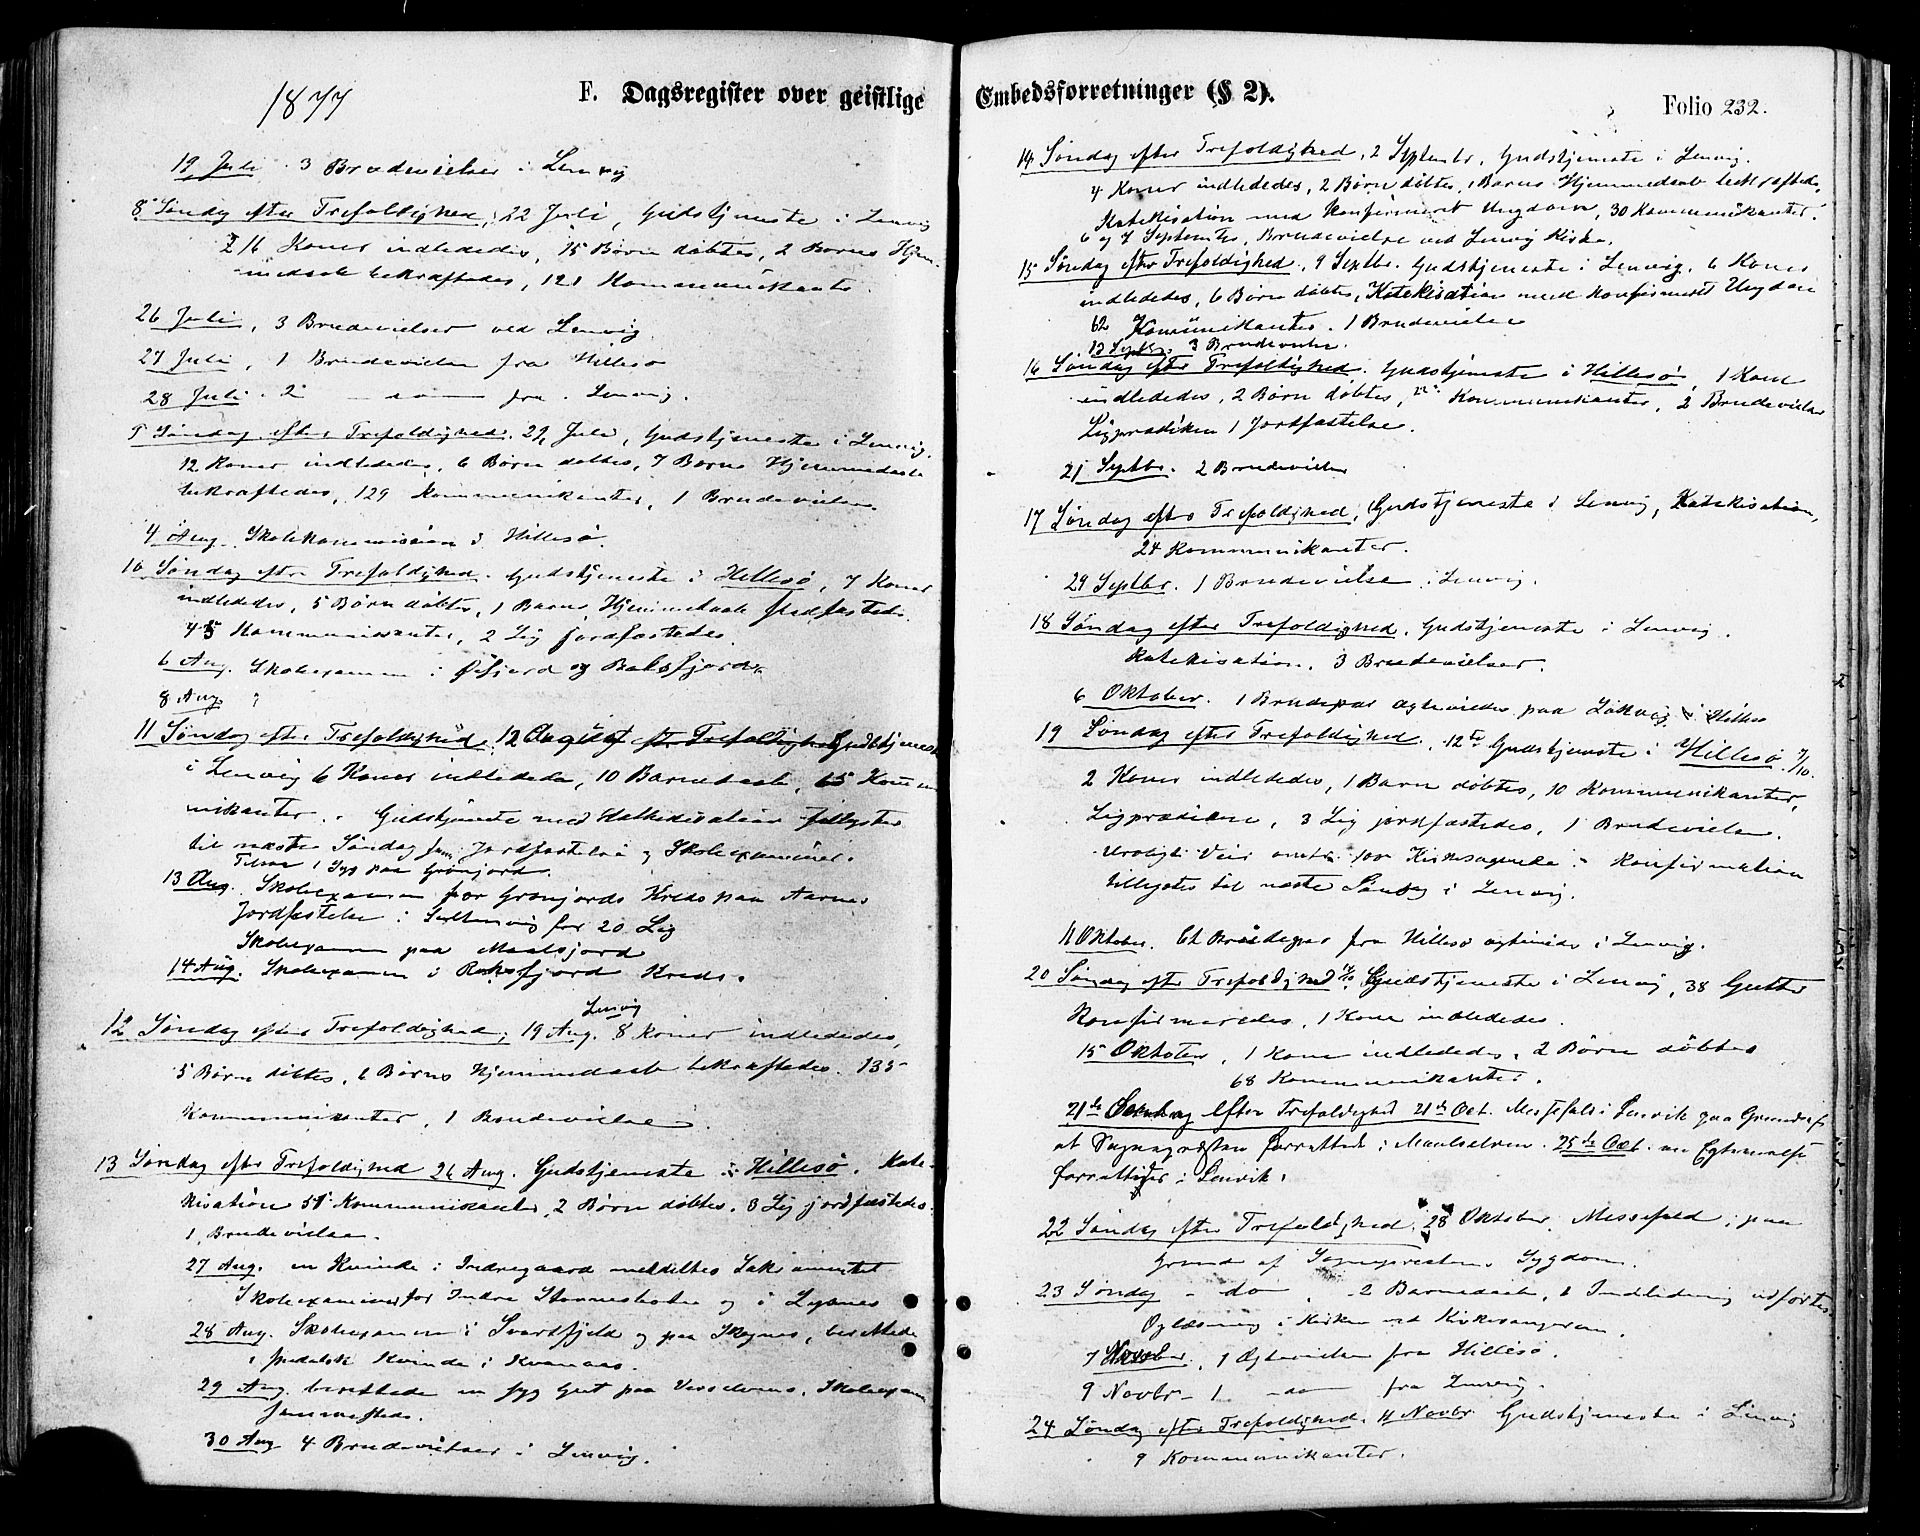 1877
F. Dagsregister over geistlige
19 Juli 3 Brudevielser i Lenvig
8 Søndag efter Trefoldighed, 22 Juli, Gudstjeneste i Lenvig
16 Koner indlededes, 15 Børn døbtes, 2 Børns Hjem-
medaab bekræftedes, 121 Kommunikanter.
26 Juli, 3 Brudevielser ved Lenvig
27 Juli, 1 Brudevielse fra Hillesø
28 Juli 2 — som fra Lenvig.
9 Søndag efter Trefoldighed 29 Juli, Gudstjeneste i Lenvig,
12 Koner indlededes, 6 Børn døbtes, 7 Børns Hjemmedaab
bekræftedes, 129 Kommunikanter, 1 Brudevielse.
4 Aug. Skolekommission i Hillesø.
10 Søndag efter Trefoldighed. Gudstjeneste i Hillesø, 7 Koner
indlededes, 5 Børn døbtes, 1 Barns Hjemmedaab stadfæstedes
45 Kommunikanter, 2 Lig jordfæstedes.
6 Aug. Skoleexamen i Øifjord og Baksfjord
8 Aug
11 Søndag efter Trefoldighed 12 August efter Trefoldighed Gudstjeneste
i Lenvig 6 Koner indledede, 10 Barnedaab, 65 Kommu-
nikanter. Gudstjeneste med Katekisation
til næste Søndag Jordfæstelse og Skoleexamen.
1 Syg paa Grønfjord.
13 Aug. Skoleexamen for Grønfjords Kreds paa Aarnes
Jordfæstelse i for 20 Lig
Skoleexamen paa
14 Aug. Skoleexamen i Kreds.
Lenvig
12 Søndag efter Trefoldighed, 19 Aug. 8 Koner indlededes,
5 Børn døbtes, 6 Børns Hjemmedaab bekræftedes. 135
Kommunikanter, 1 Brudevielse
13 Søndag efter Trefoldighed 26 Aug. Gudstjeneste i Hillesø. Kate-
kisation 51 Kommunikanter, 2 Børn døbtes. 3 Lig jordfæstedes.
1 Brudevielse.
27 Aug. en Kvinde i Indregaard meddeltes Sakramentet
Skoleexamen for Indre og i Lysnes
28 Aug. Skoleexamen i Svartfjeld og paa Skognes, berettede
Kvinde i Kvannaas.
29 Aug. berettede en syg Gut paa, Skoleexamen
30 Aug 4 Brudevielser i Lenvig.
Embedsforretninger (§ 2).
Folio 232.
14 Søndag efter Trefoldighed, 2 Septembr, Gudstjeneste i Lenvig.
4 Koner indlededes, 2 Børn døbtes, 1 Barns Hjemmedaab bekræftedes,
Katekisation med konfirmeret Ungdom, 30 Kommunikanter.
6 og 7 September, Brudevielse ved Lenvig Kirke.
15 Søndag efter Trefoldighed, 9 Septbr. Gudstjeneste i Lenvig. 6 Koner
indlededes, 6 Børn døbtes, Katekisation med konfirmeret Ungdom
62 Kommunikanter. 1 Brudevielse
13 Septbr. 3 Brudevielse.
16 Søndag efter Trefoldighed. Gudstjeneste i Hillesø, 1 Kone
indlededes, 2 Børn døbtes, Kommunikanter, 2 Brudevielser
Ligprædiken 1 Jordfæstelse.
21 Septbr. 2 Brudevielser
17 Søndag efter Trefoldighed, Gudstjeneste i Lenvig, Katekisation,
24 Kommunikanter.
29 Septbr. 1 Brudevielse i Lenvig.
18 Søndag efter Trefoldighed. Gudstjeneste i Lenvig.
Katekisation. 3 Brudevielser.
6 Oktober. 1 Brudepar ægteviedes paa i Hilles
19 Søndag efter Trefoldighed. Gudstjeneste i Hillesø 7/10.
2 Koner indlededes, 1 Barn døbtes, 10 Kommunikanter,
Ligprædiken, 3 Lig jordfæstedes, 1 Brudevielse.
Uroligt Veir Konfirmation
tillystes til næste Søndag i Lenvig.
11 Oktober. Et Brudepar fra Hillesø ægteviedes i Lenvig.
20 Søndag efter Trefoldighed Gudstjeneste i Lenvig, 38 Gutter
Konfirmeredes, 1 Kone indlededes.
15 Oktober, 1 Kone indlededes, 2 Børn døbtes
68 Kommunikanter.
21de Søndag efter Trefoldighed 21de Oct. Messefald i Lenvik paa Grund af
at Sognepræsten forrettede i Maalselven. 25de Oct. en Egtevielse
forrettedes i Lenvik.
22 Søndag efter Trefoldighed, 28 Oktober, Messefald, paa
Grund af Sognepræstens Sygdom.
23 Søndag — do — 2 Barnedaab, 2 Indledning udførtes
Oplæsning i Kirken ved Kirkesangeren.
7 Novbr, 1 Ægtevielse fra Hillesø.
9 Novbr — 1 — do — fra Lenvig.
24 Søndag efter Trefoldighed. 11 Novbr Gudstjeneste i Lenvig
9 Kommunikanter.